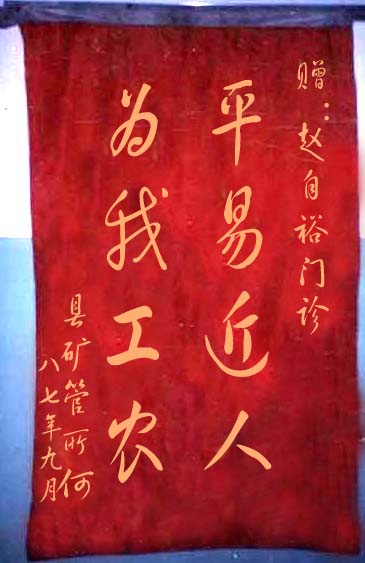 赠：赵自裕门诊
平易近人
为我工农
县矿管所何
八七年九月